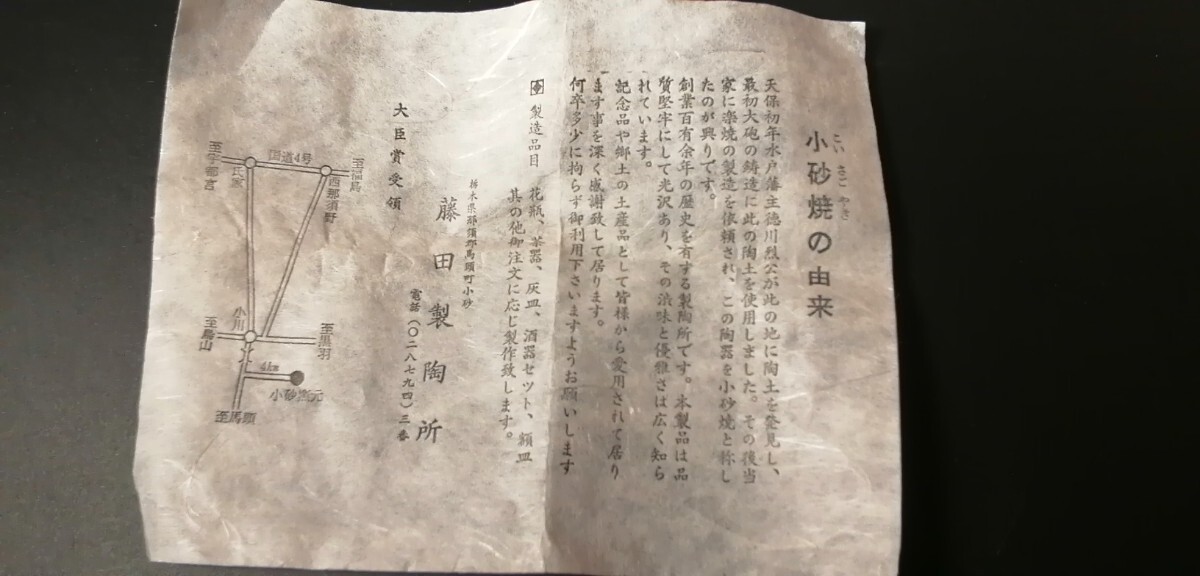 小砂焼の由来
こいさごやき
天保初年水戸藩主徳川烈公が此の地に陶土を発見し、
最初大砲の鋳造に此の陶土を使用しました。その後当
家に楽焼の製造を依頼され、この陶器を小砂焼と称し
たのが興りです。
創業百有余年の歴史を有する製陶所です。本製品は品
質堅牢にして光沢あり、その渋味と優雅さは広く知ら
れています。
記念品や郷土の土産品として皆様から愛用されて居り
ます事を深く感謝致して居ります。
何卒多少に拘らず御利用下さいますようお願いします
製造品目
花瓶、茶器、灰皿、酒器セツト、額皿
其の他御注文に応じ製作致します。
栃木県那須郡馬頭町小砂
藤田製陶所
電話(〇二八七九四)三番
大臣賞受領
至福島
西那須野
国道4号
氏家
至宇都宮
至黒羽
小川
至烏山
4km
小砂窯元
至馬頭